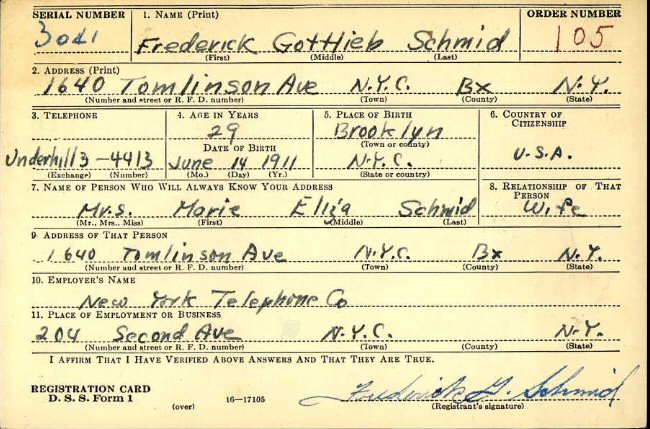 SERIAL NUMBER 1. NAME (Print) ORDER NUMBER
3041 Frederick Gottlieb Schmid 105
(First) (Middle) (Last)
2. ADDRESS (Print)
1640 Tomlinson Ave N.Y.C. Bx N.Y.
(Number and street or R. F. D. number) (Town) (County) (State)
3. TELEPHONE 4. AGE IN YEARS 5. PLACE OF BIRTH 6. COUNTRY OF CITIZENSHIP
29 Brooklyn
DATE OF BIRTH (Town or county)
Underhill 3-4413 June 14 1911 N.Y.C. U.S.A.
(Exchange) (Number) (Mo.) (Day) (Yr.) (State or country)
7. NAME OF PERSON WHO WILL ALWAYS KNOW YOUR ADDRESS 8. RELATIONSHIP OF THAT PERSON
Mrs. Marie Eliza Schmid Wife
(Mr., Mrs., Miss) (First) (Middle) (Last)
9. ADDRESS OF THAT PERSON
1640 Tomlinson Ave N.Y.C. Bx N.Y.
(Number and street or R. F. D. number) (Town) (County) (State)
10. EMPLOYER'S NAME
New York Telephone Co
11. PLACE OF EMPLOYMENT OR BUSINESS
204 Second Ave N.Y.C. N.Y.
(Number and street or R. F. D. number) (Town) (County) (State)
I AFFIRM THAT I HAVE VERIFIED ABOVE ANSWERS AND THAT THEY ARE TRUE.
REGISTRATION CARD
D. S. S. Form 1 (over) 16—17105 Frederick G. Schmid
(Registrant's signature)